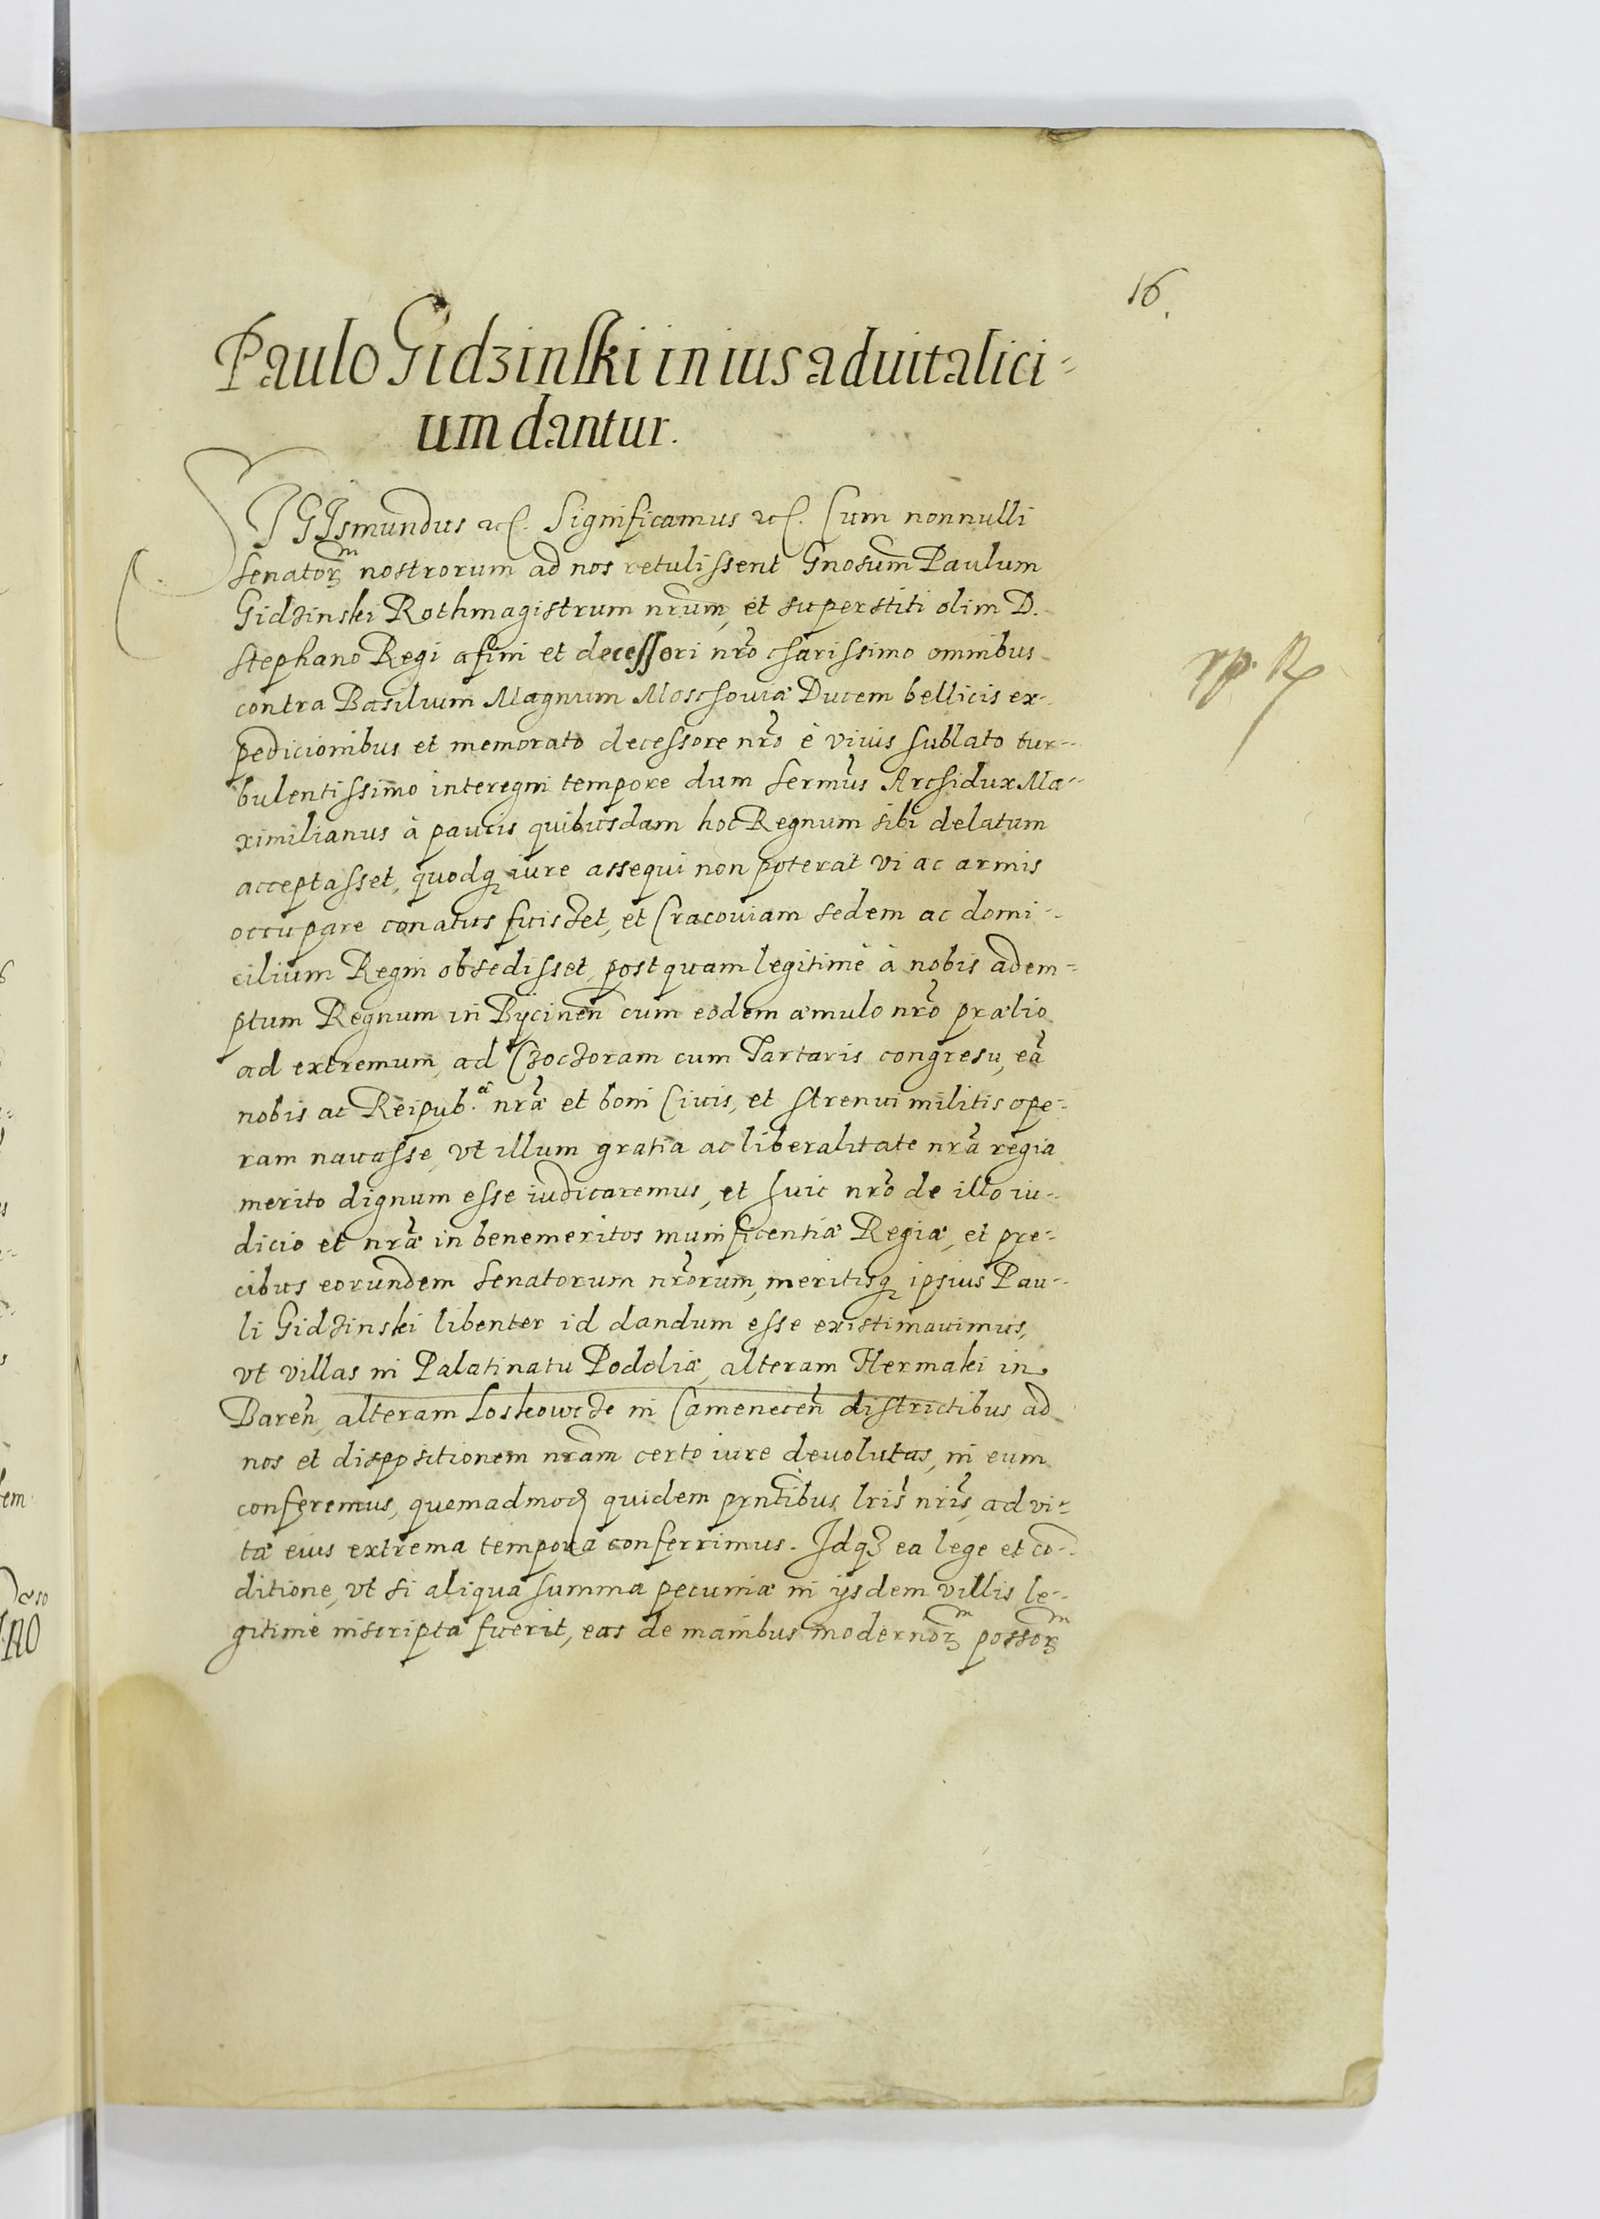 16.
Paulo Gidzinski in ius advitalici-
um dantur.
SIGIsmundus etc. Significamus etc. Cum nonnulli
Senatoꝝ nostrorum ad nos retulissent Gnosum Paulum
Gidzinski Rothmagistrum nrum, et superstiti olim D.
Stephano Regi afini et decessori nro charissimo omnibus
contra Basilium Magnum Moschoviæ Ducem bellicis ex-
pedicionibus et memorato decessore nro è viuis sublato tur-
bulentissimo interegni tempore dum Sermus Archidux Ma-
ximilianus à paucis quibusdam hoc Regnum sibi delatum
acceptasset, quodq iure assequi non poterat vi ac armis
occupare conatus fuisset, et Cracouiam sedem ac domi-
cilium Regni obsedisset, post quam legitimè à nobis adem-
ptum Regnum in Bycinen cum eodem æmulo nro prælio
ad extremum, ad Czoczoram cum Tartaris congresu, eā
nobis ac Reipub.æ nræ et boni Ciuis, et strenui militis ope-
ram nauasse, vt illum gratia ac liberalitate nra regia
merito dignum esse iudicaremus, et huic nro de illo iu-
dicio et nræ in benemeritos munificentiæ Regiæ, et pre-
cibus eorundem Senatorum nrorum, meritisq ipsius Pau-
li Gidzinski libenter id dandum esse existimauimus,
vt villas in Palatinatu Podoliæ, alteram Hermaki in
Baren, alteram Loskowcze in Camenecen districtibus ad
nos et dispositionem nram certo iure deuolutas, in eum
conferemus, quemadmod quidem prntibus lris nris, ad vi-
tæ eius extrema tempora conferrimus. Idqꝫ ea lege et co-
ditione, vt si aliqua summa pecuniæ in ijsdem villis le-
gitimè inscripta fuerit, eas de manibus modernoꝝ possoꝝ